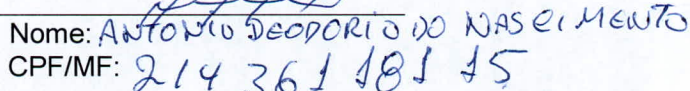 Nome: ANTONIO DEODORIO DO NASCIMENTO
CPF/MF: 214 361 181 15